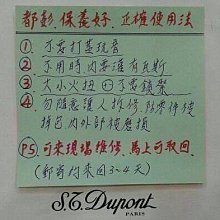 都彭 保養好 正確使用法
① 不要打蓋玩音
② 不用時內要灌有瓦斯
③ 大小火扭 不要鎖緊
④ 勿隨意讓人維修, 防零件被
拆 內外計被磨損
PS 可來現場維修, 馬上可取回.
(郵寄約來回3~4天)
S.T. Dupont
PARIS